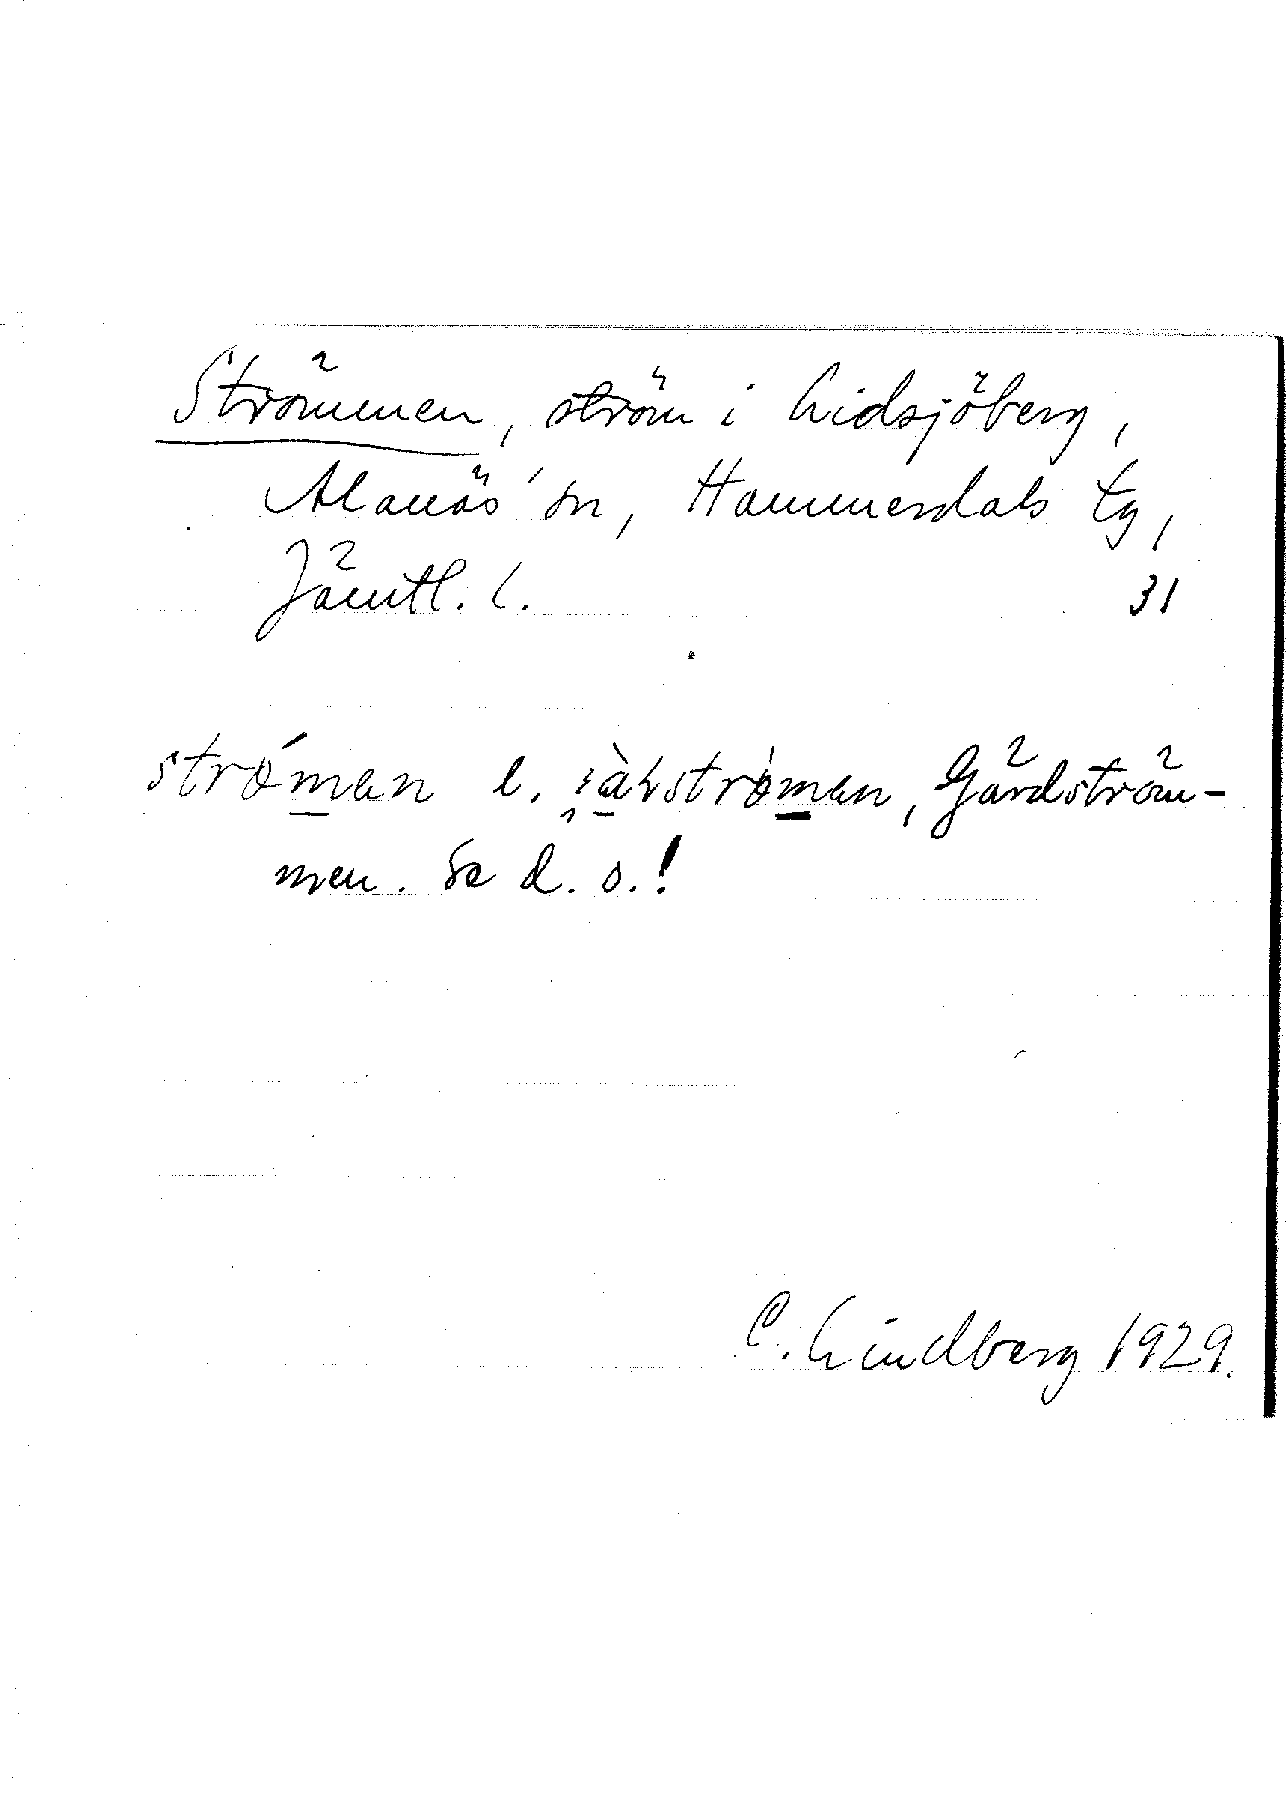 Strömmen, ström i Lidsjöberg,
Alanäs sn, Hammerdals tg,
Jämtl. l. 31
strø´man l. Gårdström-
men. Se d. o.!
C. Lindberg 1929.